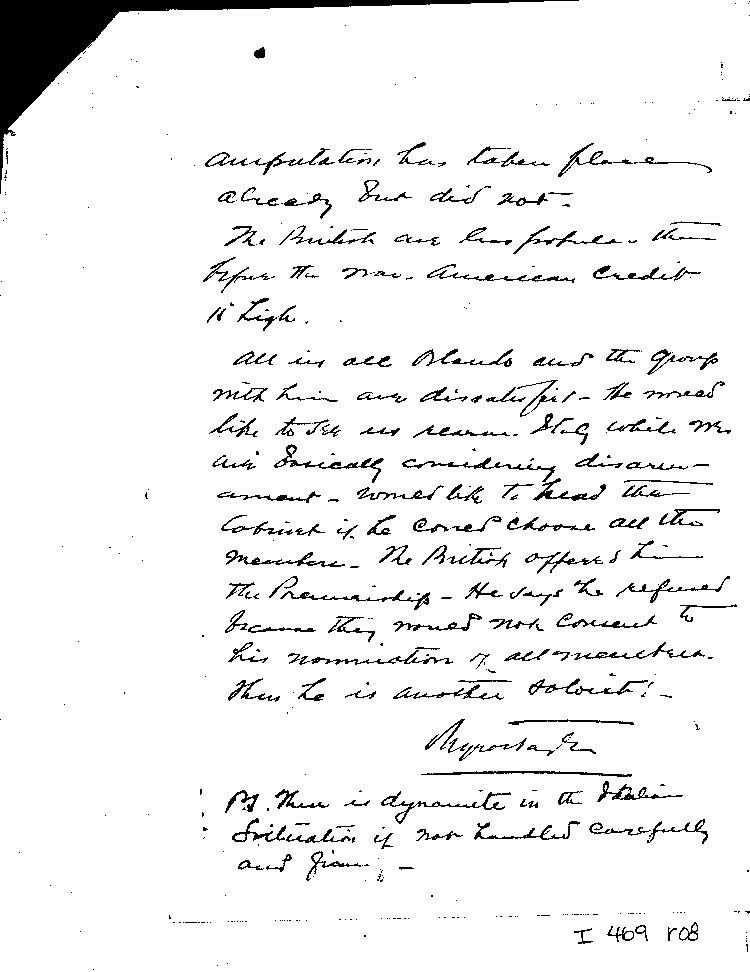 amputation has taken place
already but did not.
The British are less popular than
before the war. American Credit
is high.
All in all Orlando and the group
with him are dissatisfied - He would
like to see us rearm Italy while we
are basically considering disarm-
ament - would like to head the
Cabinet if he could choose all the
members - The British offered him
the Premiership - He says he refused
because they would not consent to
his nomination of all members.
Thus he is another soloist! -
PS. There is dynamite in the Italian
Situation if not handled carefully
and firmly -
I 469 r08